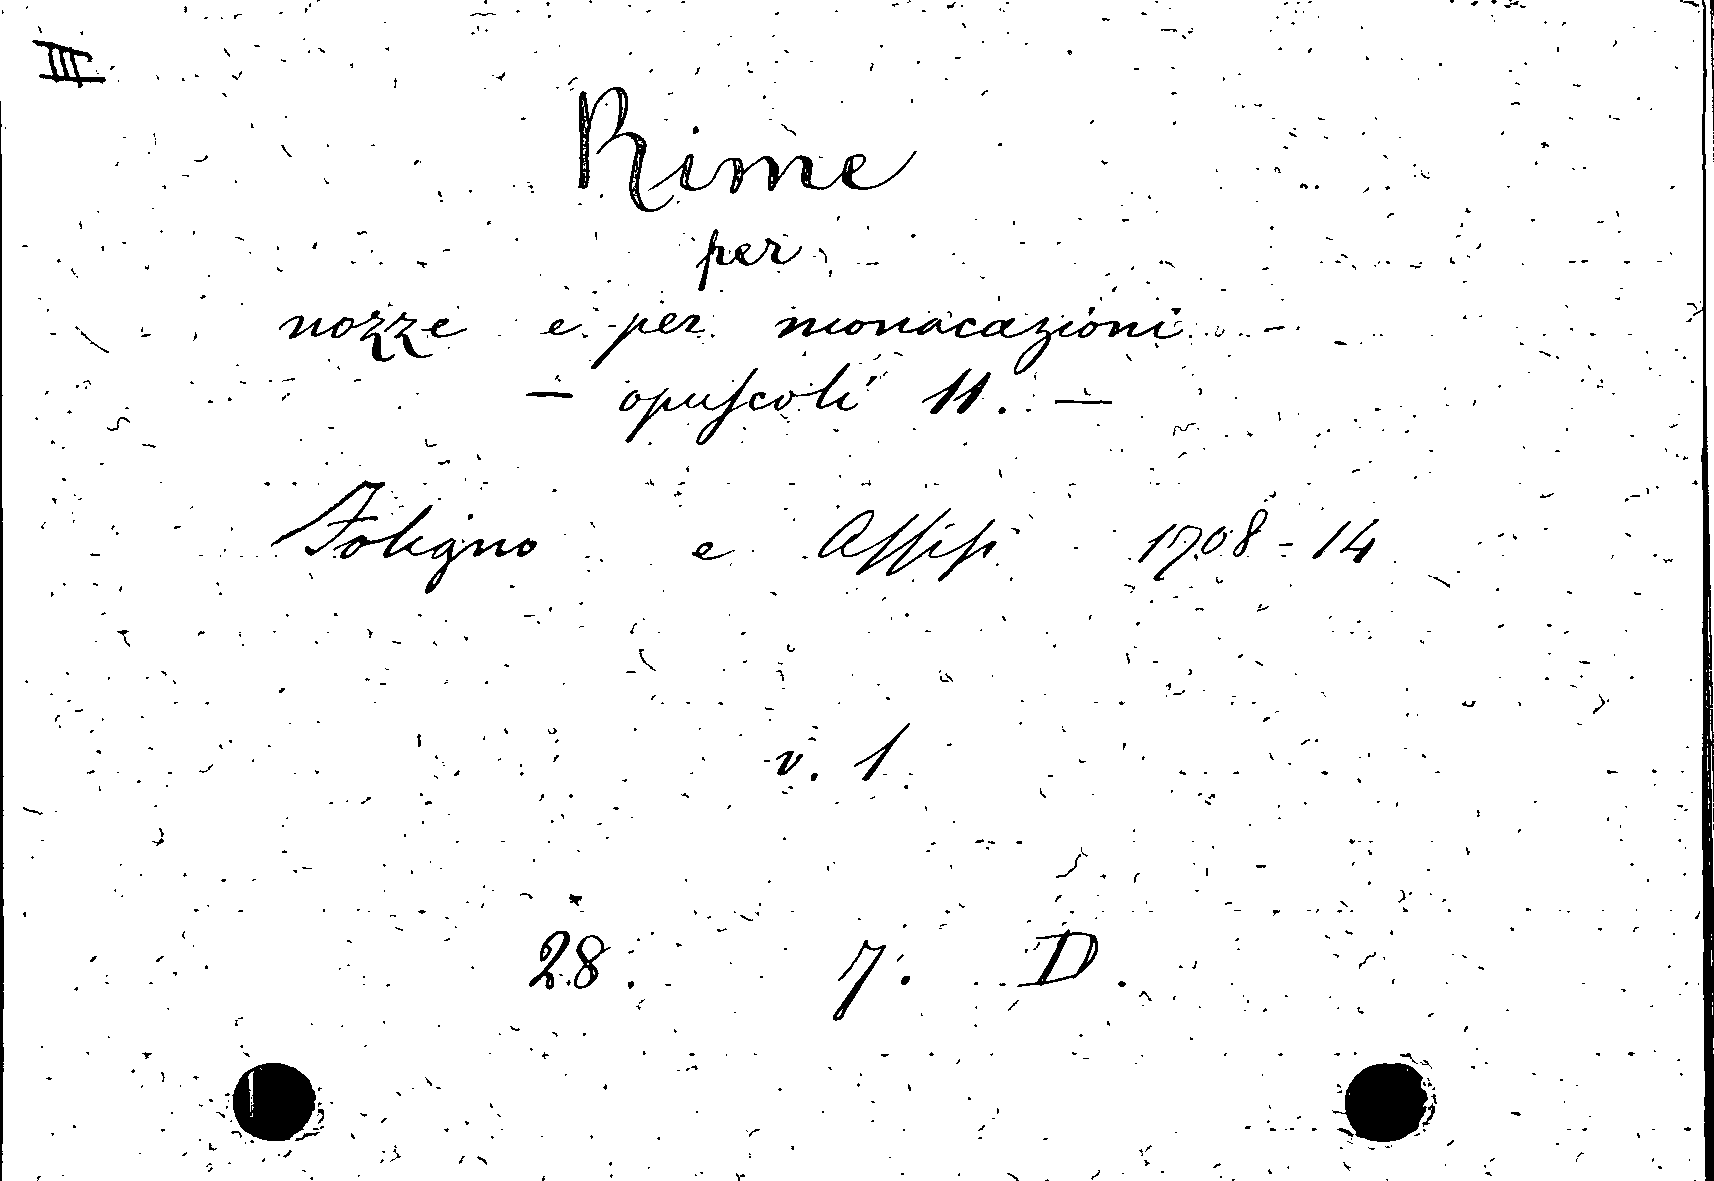 III
Rime
per
nozze e per monacazioni
— opuscoli 11. —
Foligno e Assisi 1708-14
v. 1
28. 7. D.